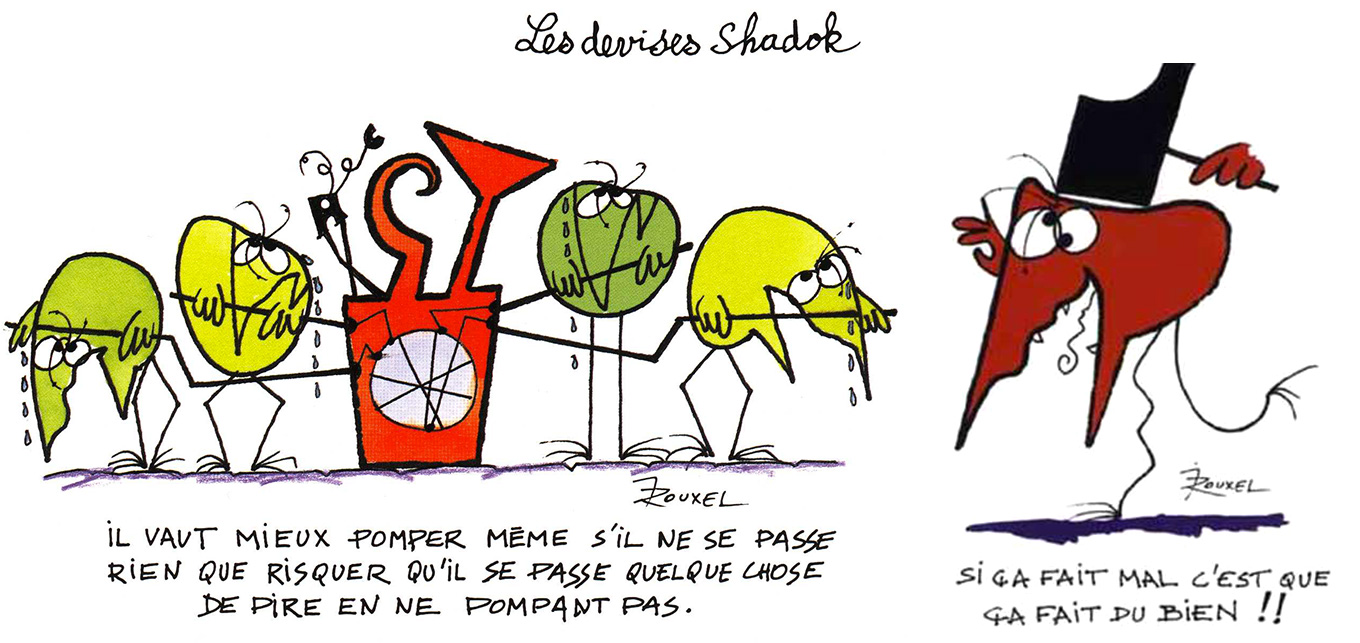 Les devises Shadok
ROUXEL
IL VAUT MIEUX POMPER MÊME S'IL NE SE PASSE
RIEN QUE RISQUER QU'IL SE PASSE QUELQUE CHOSE
DE PIRE EN NE POMPANT PAS.
ROUXEL
SI ÇA FAIT MAL C'EST QUE
ÇA FAIT DU BIEN !!